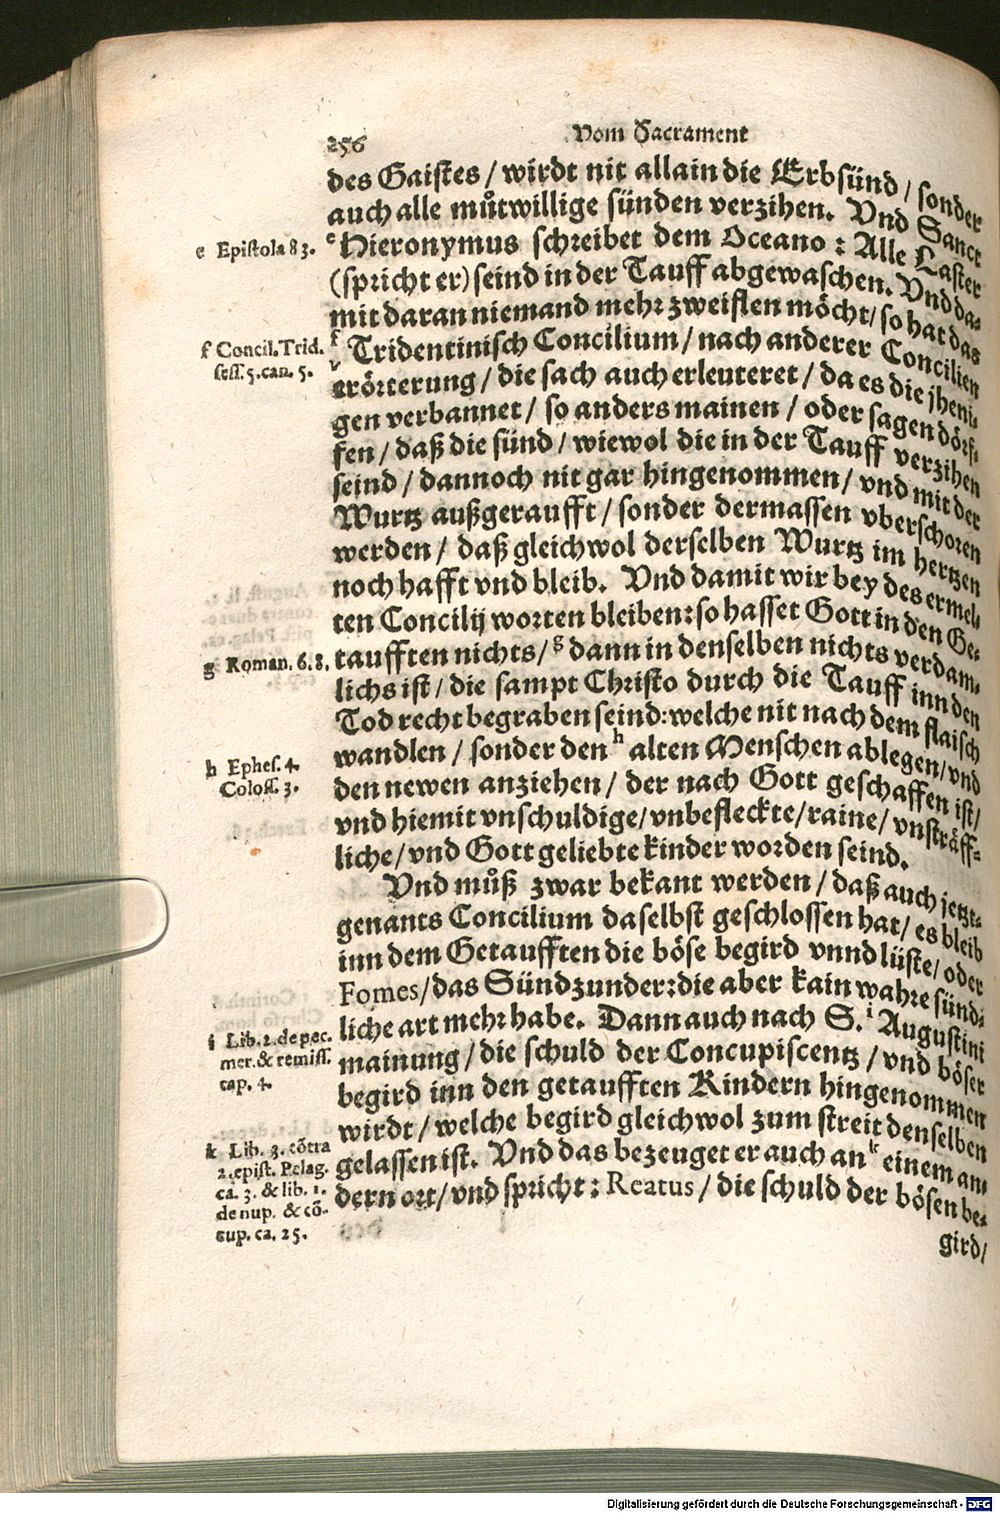 256 Vom Sacrament
des Gaistes / wirdt nit allain die Erbsünd / sonder
auch alle můtwillige sünden verzihen. Vnd Sanct
e Epistola 83. e Hieronymus schreibet dem Oceano : Alle Laster
(spricht er) seind in der Tauff abgewaschen. Vnd da-
mit daran niemand mehr zweiflen möcht / so hat das
f Concil. Trid. f Tridentinisch Concilium / nach anderer Concilien
sess. 5. can. 5. erörterung / die sach auch erleuteret / da es die jheni-
gen verbannet / so anders mainen / oder sagen dörf-
fen / daß die sünd / wiewol die in der Tauff verzihen
seind / dannoch nit gar hingenommen / vnd mit der
Wurtz außgeraufft / sonder dermassen vberschoren
werden / daß gleichwol derselben Wurtz im hertzen
noch hafft vnd bleib. Vnd damit wir bey des ermel-
ten Concilij worten bleiben: so hasset Gott in den Ge-
g Roman. 6. 8. taufften nichts / g dann in denselben nichts verdam-
lichs ist / die sampt Christo durch die Tauff inn den
Tod recht begraben seind: welche nit nach dem flaisch
h Ephes. 4. wandlen / sonder den h alten Menschen ablegen / vnd
Coloss. 3. den newen anziehen / der nach Gott geschaffen ist /
vnd hiemit vnschuldige / vnbefleckte / raine / vnsträff-
liche / vnd Gott geliebte kinder worden seind.
Vnd můß zwar bekant werden / daß auch jetzt-
genants Concilium daselbst geschlossen hat / es bleib
inn dem Getaufften die böse begird vnnd lüste / oder
Fomes / das Sündzunder: die aber kain wahre sünd-
liche art mehr habe. Dann auch nach S. i Augustini
i Lib. 2. de pec. mainung / die schuld der Concupiscentz / vnd böser
mer. & remiss. begird inn den getaufften Kindern hingenommen
cap. 4. wirdt / welche begird gleichwol zum streit denselben
k Lib. 3. cõtra gelassen ist. Vnd das bezeuget er auch an k einem an-
2. epist. Pelag. dern ort / vnd spricht : Reatus / die schuld der bösen be-
ca. 3. & lib. 1.
de nup. & cõ-
cup. ca. 25.
gird /
Digitalisierung gefördert durch die Deutsche Forschungsgemeinschaft - DFG